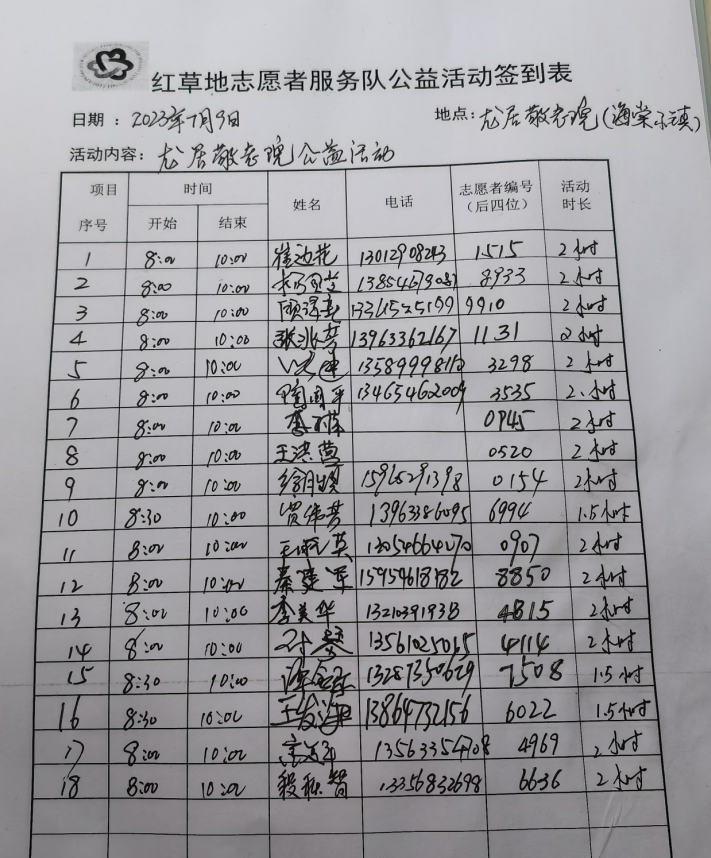 红草地志愿者服务队公益活动签到表
日期：2023年7月9日 地点：龙居敬老院(海棠小镇)
活动内容：龙居敬老院公益活动
项目 时间 姓名 电话 志愿者编号（后四位） 活动时长
序号 开始 结束
1 8:00 10:00 1515 2小时
2 8:00 10:00 8933 2小时
3 8:00 10:00 9910 2小时
4 8:00 10:00 13963362167 1131 2小时
5 8:00 10:00 3298 2小时
6 8:00 10:00 13465462009 3535 2小时
7 8:00 10:00 2小时
8 8:00 10:00 王洪 0520 2小时
9 8:00 10:00 0154 2小时
10 8:30 10:00 贾伟芳 13963386095 6994 1.5小时
11 8:00 10:00 13054664070 0907 2小时
12 8:00 10:00 秦建军 15959618182 8850 2小时
13 8:00 10:00 李美华 13210391938 4815 2小时
14 8:00 10:00 4114 2小时
15 8:30 10:00 13287350629 7508 1.5小时
16 8:30 10:00 13864732156 6022 1.5小时
17 8:00 10:00 4969 2小时
18 8:00 10:00 13356832698 6636 2小时